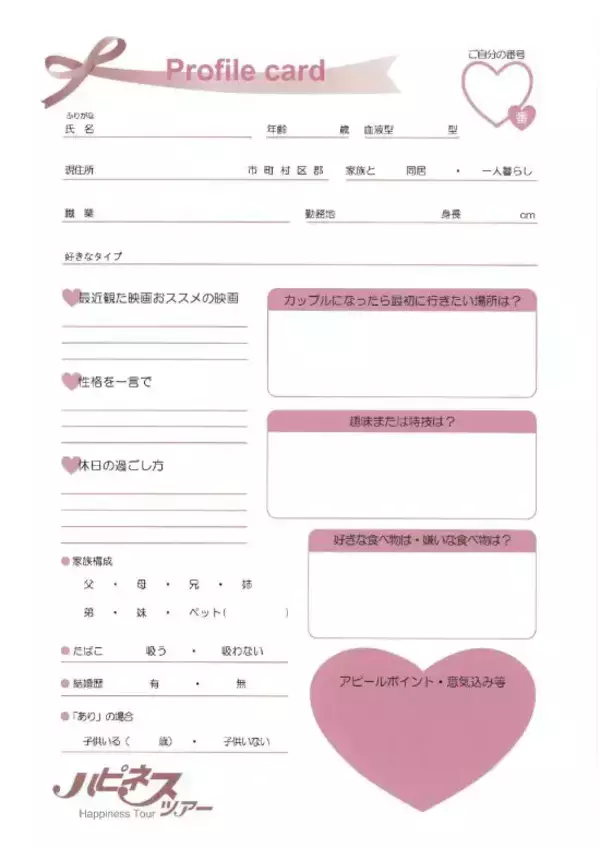 Profile card
ご自分の番号
番
ふりがな
氏 名 年齢 歳 血液型 型
現住所 市 町 村 区 郡 家族と 同居 ・ 一人暮らし
職 業 勤務地 身長 cm
好きなタイプ
最近観た映画おススメの映画
性格を一言で
休日の過ごし方
カップルになったら最初に行きたい場所は？
趣味または特技は？
好きな食べ物は・嫌いな食べ物は？
家族構成
父 ・ 母 ・ 兄 ・ 姉
弟 ・ 妹 ・ ペット( )
たばこ 吸う ・ 吸わない
結婚歴 有 ・ 無
「あり」の場合
子供いる ( 歳) ・ 子供いない
アピールポイント・意気込み等
ハピネス
ツアー
Happiness Tour